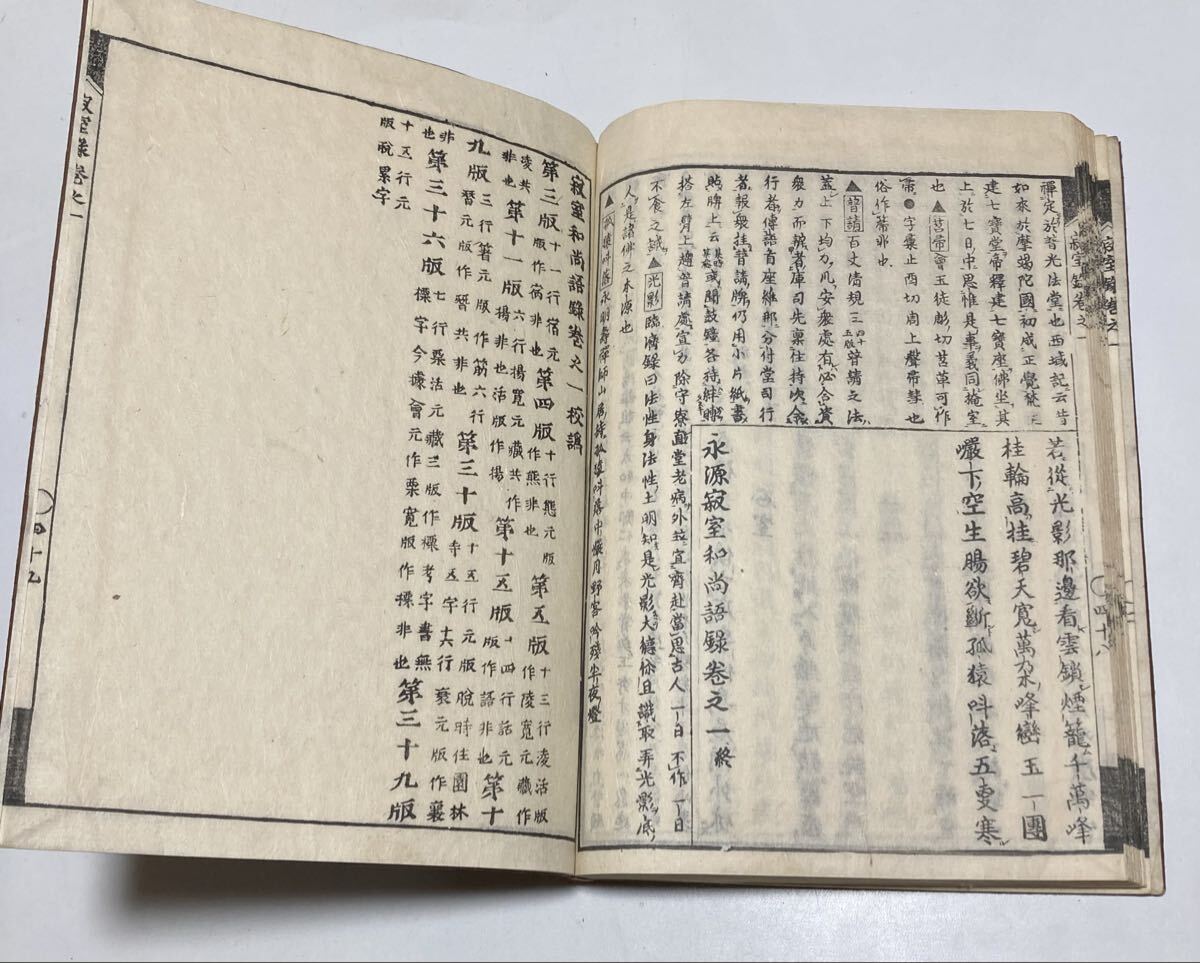 禪定於普光法堂也西域記云昔
如來於摩竭陀國初成正覺梵王
建七寶堂帝釋建七寶座佛坐其
上於七日中思惟是事義同掩室
也▲莒帚會玉徒彫切莒草可作
帚●字彙止酉切周上聲帚彗也
俗作箒非也
▲普請百丈清規三四十五版普請之法
蓋上下均力凡安衆處有必合資
衆力而辦者庫司先稟住持次令
行者傳語首座維那分付堂司行
者報衆挂普請牌仍用小片紙書
貼牌上云某時某處或聞鼓鐘各持絆膊
搭左臂上趨普請處宣力除守寮直堂老病外竝宜齊赴當思古人一日不作一日
不食之誡▲光影臨濟錄曰法性身法性土明知是光影大德你且識取弄光影底
人是諸佛之本源也
▲孤猿叫落永明壽禪師山居詩孤猿叫落中巖月野客吟殘半夜燈
若從光影那邊看雲鎖煙籠千萬峰
桂輪高挂碧天寬萬朶峰巒玉一團
巖下空生腸欲斷孤猿叫落五更寒
永源寂室和尚語錄卷之一終
寂室錄卷之一
四十八
寂室和尚語錄卷之一校譌
第三版十一行宿元版作㝛非也第四版十行態元版作熊非也第五版十三行淩活版作陵寬元藏作
淩共非也第十一版六行揚寬元藏共作楊非也活版作揚第十五版十四行話元版作語非也第十
九版三行箸元版作筋六行暦元版作晉共非也第三十版十五行元版脫時住園林寺五字十六行衰元版作襄
非也第三十六版七行㮚活元藏三版作標考字書無標字今據會元作栗寬版作標非也第三十九版
十五行元版脫累字
寂室錄卷之一
四十九